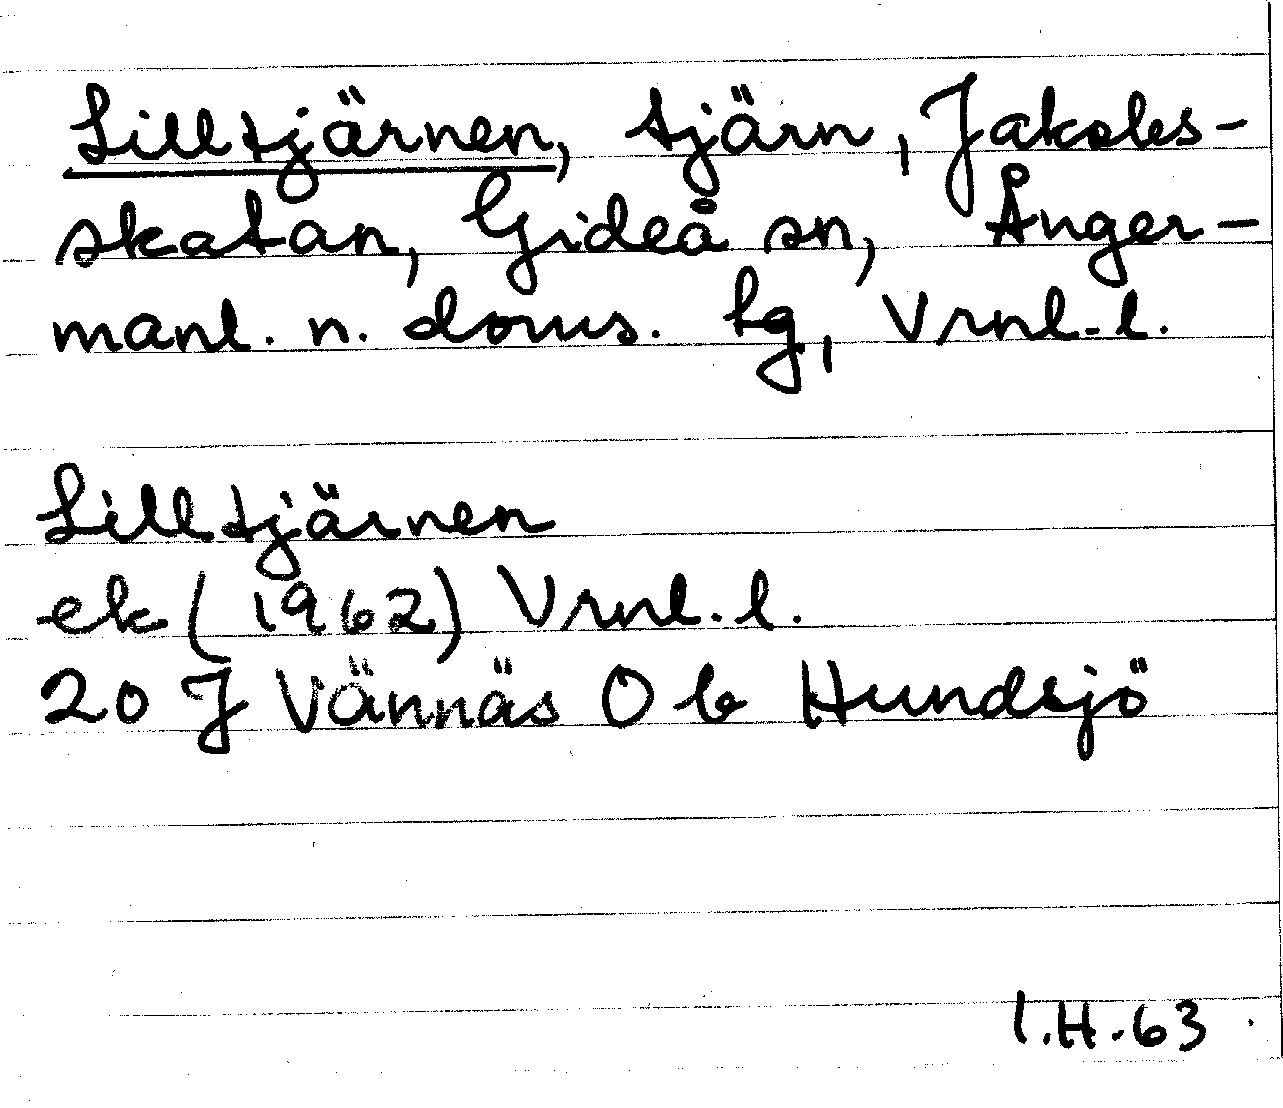 Lilltjärnen, tjärn, Jakobs-
skatan, Gideå sn, Ånger-
manl. n. doms. tg, Vrnl. l.
Lilltjärnen
ek (1962) Vrnl. l.
20 J Vännäs O b Hundsjö
I.H.63